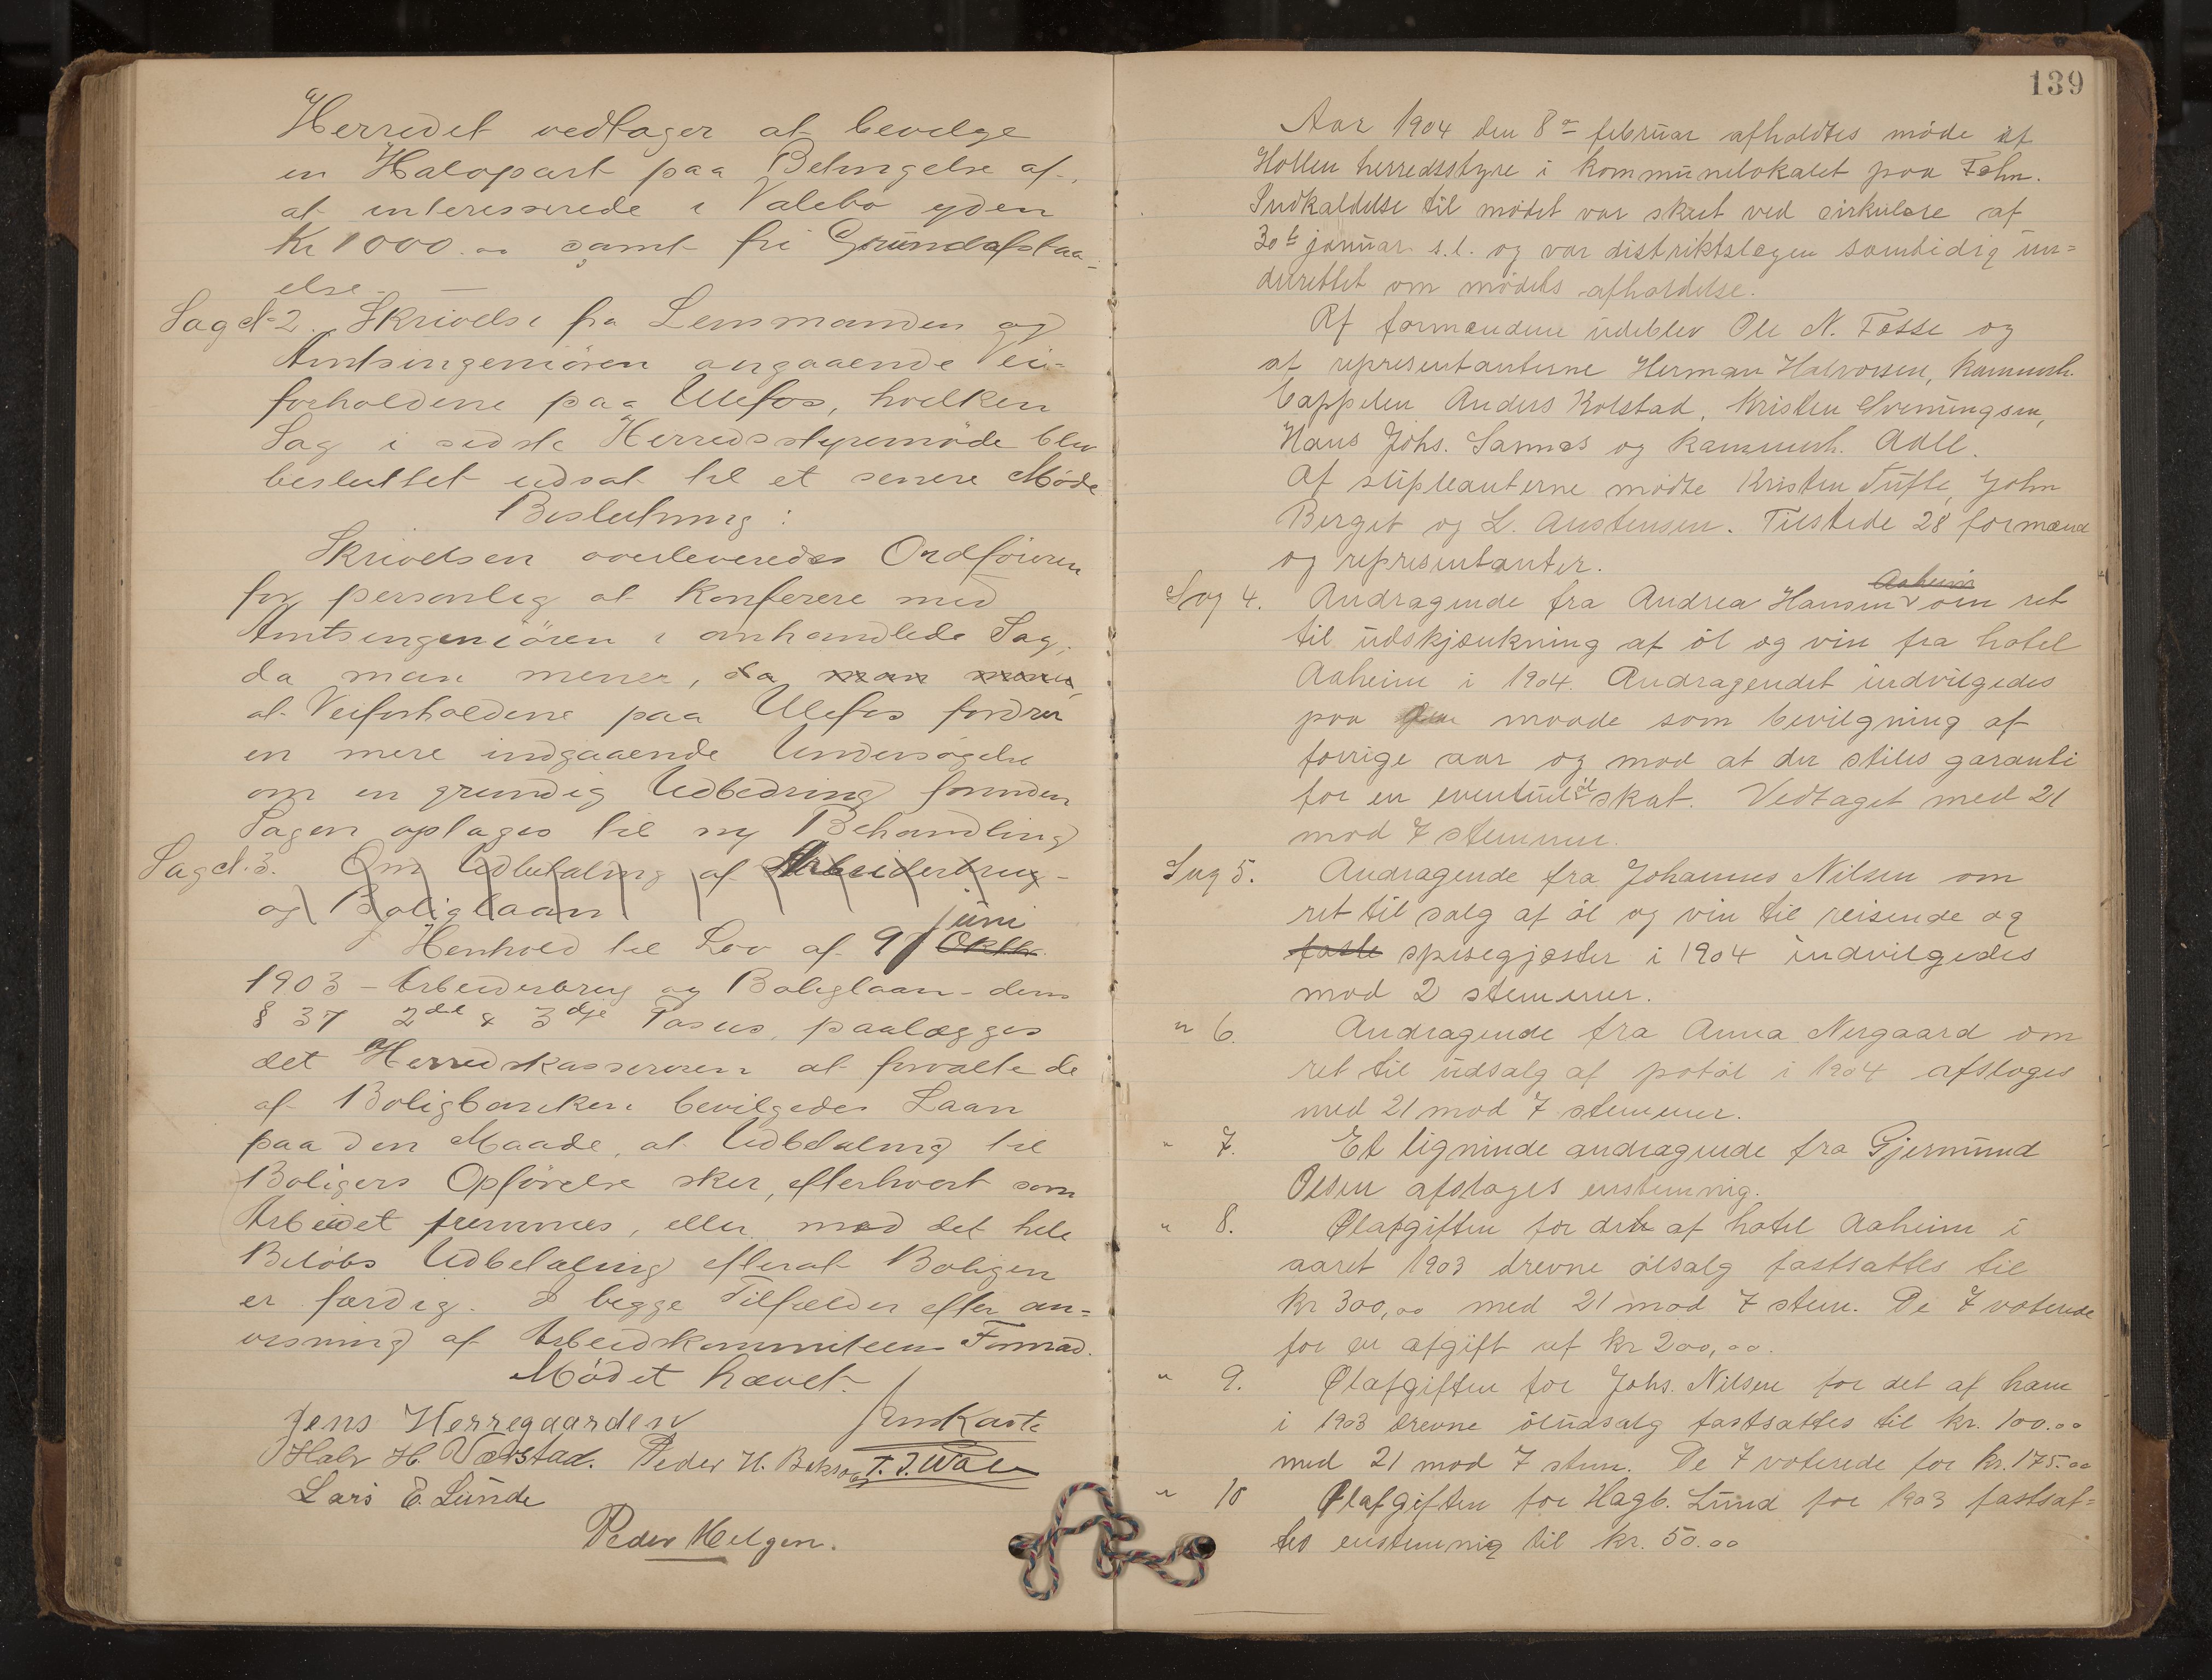 Herredet vedtager at bevelge
en Halvpart paa Betingelse af,
at interesserede i Valebø yder
Kr 1000.00 samt fri Grundafstaa-
else. —
Sag No 2. Skrivelse fra Lensmanden og
Amtsingeniören angaaende Vei-
forholdene paa Ulefos, hvelken
Sag i sidste Herredsstyremöde blev
besluttet udsat til et senere Möde
Beslutning:
Skrivelsen overleveredes Ordföreren
for personlig at Konferere med
Amtsingeniören i omhandlede Sag,
da man mener, da man mener,
at Veiforholdene paa Ulefos fordrer
en mere indgaaende Undersögelse
om en grundig Udbedring forinden
Sagen optages til ny Behandling
Sag No. 3. Om Udbetaling af Arbeiderbrug-
og Boliglaan
juni
Henhold til Lov af 9/ Oktbr.
1903 - Arbeiderbrug og Boliglaan - dens
§ 37 2det & 3dje Passus, paalægges
det Herredskassereren at forvalte de
af Boligbanken bevilgede Laan
paa den Maade, at Udbetaling til
Boligers Opförelse sker, efterhvert som
Arbeidet fremmes, eller med det hele
Belöbs Udbetaling efterat Boligen
er færdig. I begge Tilfælder efter an-
visning af Arbeidskommiteens Formand.
Mödet hævet.
Jens Herregaarden Jens Kaste
Halv H. Værstad. Peder H. T. J. Wala
Lars E. Lunde
Peder Helgen.
139
Aar 1904 den 8de februar afholdtes möde af
Hollen herredsstyre i kommunelokalet paa Fehn.
Indkaldelse til mödet var skeet ved cirkulære af
30te januar s.l. og var distriktslægen samtidig un-
derrettet om mödets afholdelse.
Af formændene udeblev Ole N. Fosse og
af representanterne Herman Halvorsen, kammerh.
Cappelen Anders Kolstad, Kristen Svenungsen,
Hans Johs. Sannes og kammerh. Aall.
Af supleanterne mödte Kristen Tufte, John
Berget og L. Austensen. Tilstede 28 formænd
og representanter.
Aaheim
Sag 4. Andragende fra Andrea Hansen om ret
til udskjænkning af öl og vin fra hotel
Aaheim i 1904. Andragendet indvilgedes
paa den maade som bevilgning af
forrige aar og mod at der stiles garanti
for en eventuel öl skat. Vedtaget med 21
mod 7 stemmer.
Sag 5. Andragende fra Johannes Nilsen om
ret til salg af öl og vin til reisende og
faste spisegjæster i 1904 indvilgedes
mod 2 stemmer.
" 6. Andragende fra Anna Nergaard om
ret til udsalg af potöl i 1904 afsloges
med 21 mod 7 stemmer.
" 7. Et lignende andragende fra Gjermund
Olsen afsloges enstemmig.
" 8. Ølafgiften for det af hotel Aaheim i
aaret 1903 drevne ölsalg fastsattes til
kr 300,00 med 21 mod 7 stem. De 7 voterede
for en afgift af kr 200,00.
" 9. Ølafgiften for Johs. Nilsen for det af ham
i 1903 drevne öludsalg fastsattes til kr. 100.00
med 21 mod 7 stem. De 7 voterede for kr. 175.00
" 10 Ølafgiften for Hagb. Lund for 1903 fastsat-
tes enstemmig til kr. 50.00